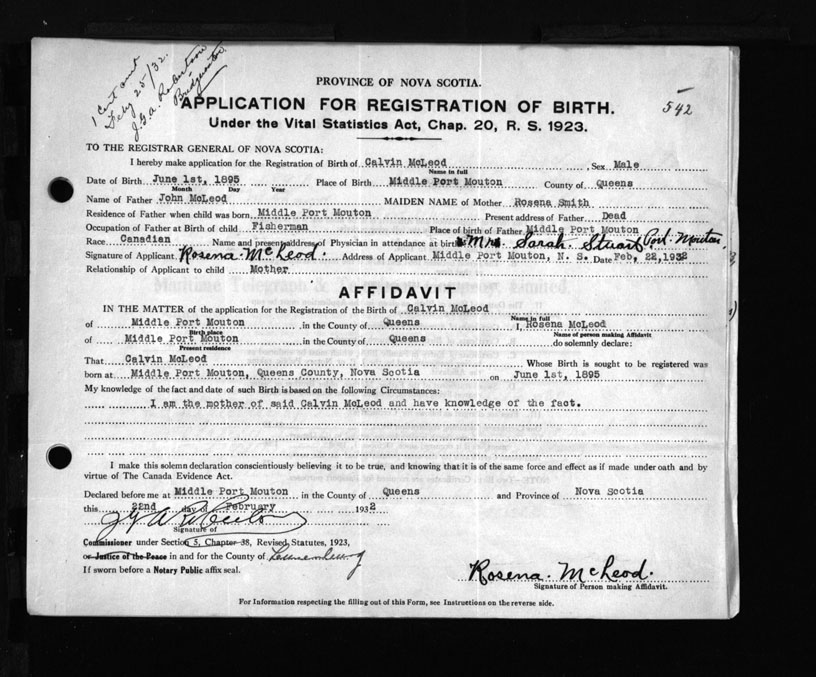 1 Cent amt
Feby 25/32.
J.G.A. Robertson
Bridgewater
PROVINCE OF NOVA SCOTIA.
APPLICATION FOR REGISTRATION OF BIRTH.
542
Under the Vital Statistics Act, Chap. 20, R. S. 1923.
TO THE REGISTRAR GENERAL OF NOVA SCOTIA:
I hereby make application for the Registration of Birth of Calvin McLeod Sex Male
Name in full
Date of Birth June 1st, 1895 Place of Birth Middle Port Mouton County of Queens
Month Day Year
Name of Father John McLeod MAIDEN NAME of Mother Rosena Smith
Residence of Father when child was born Middle Port Mouton Present address of Father Dead
Occupation of Father at Birth of child Fisherman Place of birth of Father Middle Port Mouton
Race Canadian Name and present address of Physician in attendance at birth Mrs. Sarah Stuart Port Mouton,
Signature of Applicant Rosena McLeod. Address of Applicant Middle Port Mouton, N. S. Date Feb, 22, 1932
Relationship of Applicant to child Mother
AFFIDAVIT
IN THE MATTER of the application for the Registration of the Birth of Calvin McLeod
Name in full
of Middle Port Mouton in the County of Queens I, Rosena McLeod
Birth place Name of person making Affidavit
of Middle Port Mouton in the County of Queens do solemnly declare:
Present residence
That Calvin McLeod Whose Birth is sought to be registered was
born at Middle Port Mouton, Queens County, Nova Scotia on June 1st, 1895
My knowledge of the fact and date of such Birth is based on the following Circumstances:
I am the mother of said Calvin McLeod and have knowledge of the fact.
I make this solemn declaration conscientiously believing it to be true, and knowing that it is of the same force and effect as if made under oath and by
virtue of The Canada Evidence Act.
Declared before me at Middle Port Mouton in the County of Queens and Province of Nova Scotia
this 22nd day of February 1932
Signature of
Commissioner under Section 5, Chapter 38, Revised Statutes, 1923,
or Justice of the Peace in and for the County of Lunenburg
If sworn before a Notary Public affix seal.
Rosena McLeod.
Signature of Person making Affidavit.
For Information respecting the filling out of this Form, see Instructions on the reverse side.